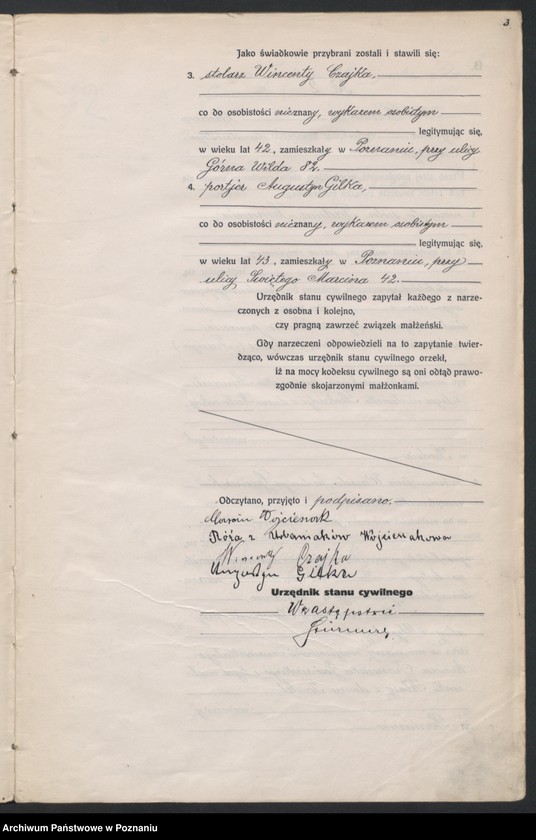 3
Jako świadkowie przybrani zostali i stawili się:
3. stolarz Wincenty Czajka,
co do osobistości nieznany, wykazem osobistym
legitymując się,
w wieku lat 42, zamieszkały w Poznaniu, przy ulicy
Górna Wilda 82.
4. portjer Augustyn Gilka,
co do osobistości nieznany, wykazem osobistym
legitymując się,
w wieku lat 43, zamieszkały w Poznaniu, przy
ulicy Świętego Marcina 42.
Urzędnik stanu cywilnego zapytał każdego z narze-
czonych z osobna i kolejno,
czy pragną zawrzeć związek małżeński.
Gdy narzeczeni odpowiedzieli na to zapytanie twier-
dząco, wówczas urzędnik stanu cywilnego orzekł,
iż na mocy kodeksu cywilnego są oni odtąd prawo-
zgodnie skojarzonymi małżonkami.
Odczytano, przyjęto i podpisano.
Marcin Wojcieszak
Róża z Urbaniaków
Wincenty Czajka
Augustyn Gilka
Urzędnik stanu cywilnego
W zastępstwie
Archiwum Państwowe w Poznaniu